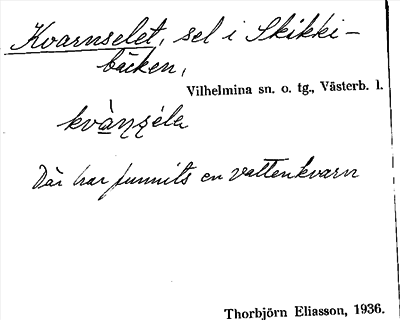 Kvarnselet, sel i Skikki-
bäcken,
Vilhelmina sn. o. tg., Västerb. l.
Där har funnits en vattenkvarn
Thorbjörn Eliasson, 1936.